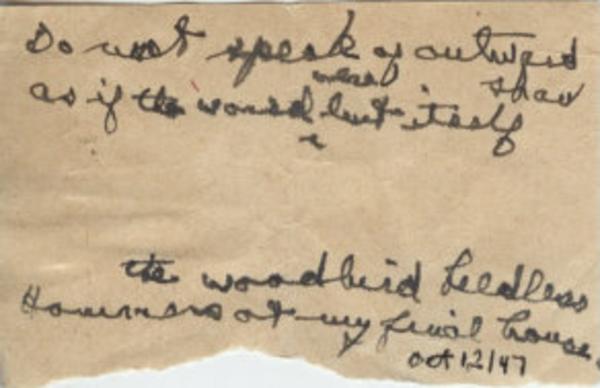 Do not speak of outward show
as if the world were but itself
the woodbird heedless
Hammers at my final house.
Oct 12/47